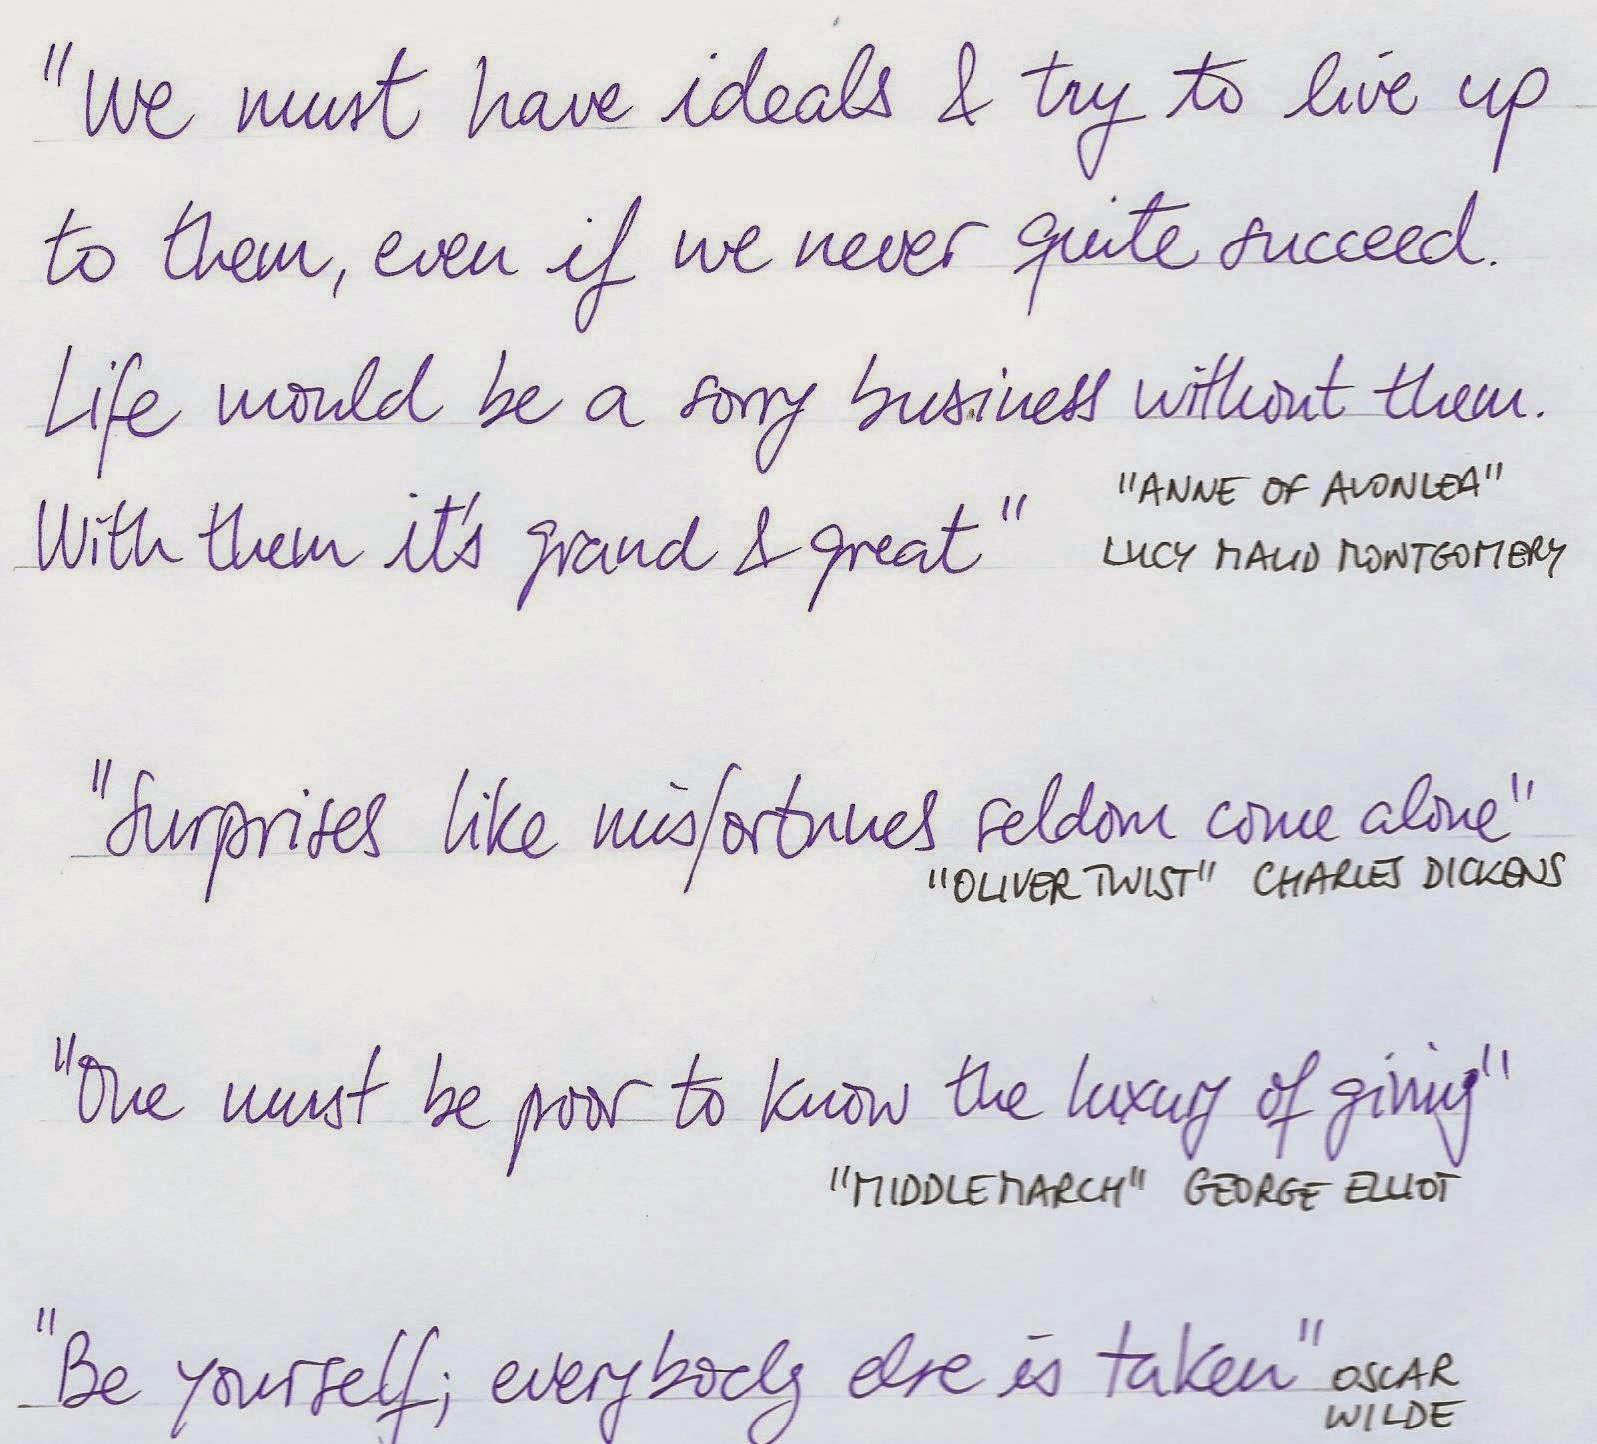 "We must have ideals & try to live up
to them, even if we never quite succeed.
Life would be a sorry business without them.
With them it's grand & great"
"ANNE OF AVONLEA"
LUCY MAUD MONTGOMERY
"Surprises like misfortunes seldom come alone"
"OLIVER TWIST" CHARLES DICKENS
"One must be poor to know the luxury of giving"
"MIDDLEMARCH" GEORGE ELLIOT
"Be yourself; everybody else is taken" OSCAR
WILDE